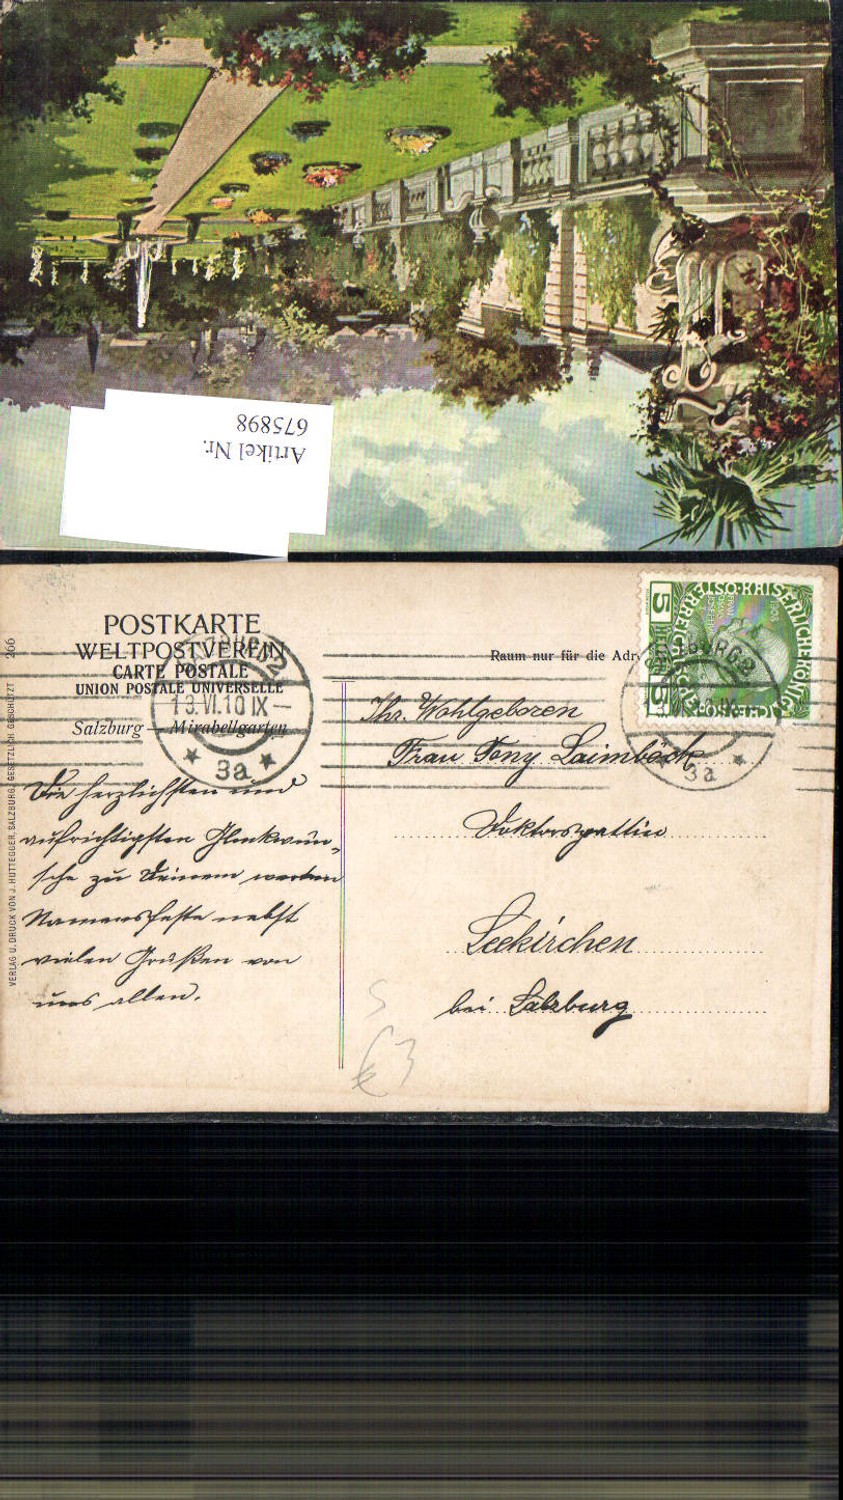 Artikel Nr.
675898
POSTKARTE
WELTPOSTVEREIN
CARTE POSTALE
UNION POSTALE UNIVERSELLE
Salzburg — Mirabellgarten
266
VERLAG U. DRUCK VON J. HUTTEGGER, SALZBURG. GESETZLICH GESCHÜTZT
SALZBURG 2
13.VI.10 IX
3a
Die herzlichsten und
aufrichtigsten Glückwün-
sche zu Deinem werten
Namensfeste nebst
vielen Grüßen von
uns allen.
Raum nur für die Adr
5
5
KAISERLICHE·KÖNIGLICHE
ÖSTERREICHISCHE POST
3a
Ihr. Wohlgeboren
Frau Tony Laimböck
Doktorsgattin
Seekirchen
bei Salzburg
5
€3